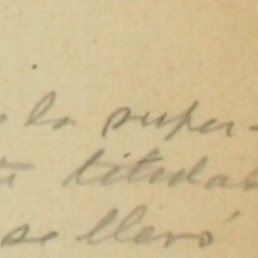 la super-
titulab
se llevó